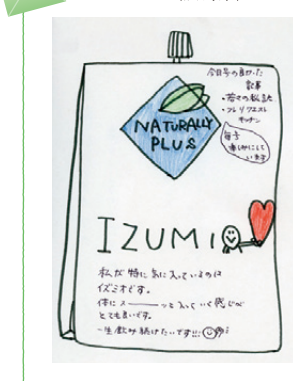 今月号の良かった
記事
キッチン
毎号
楽しみにして
います
NATURALLY
PLUS
IZUMIO
私が特に気に入っているのは
イズミオです。
体にスーーーッと入っていく感じが
とても良いです。
一生飲み続けたいです!!!